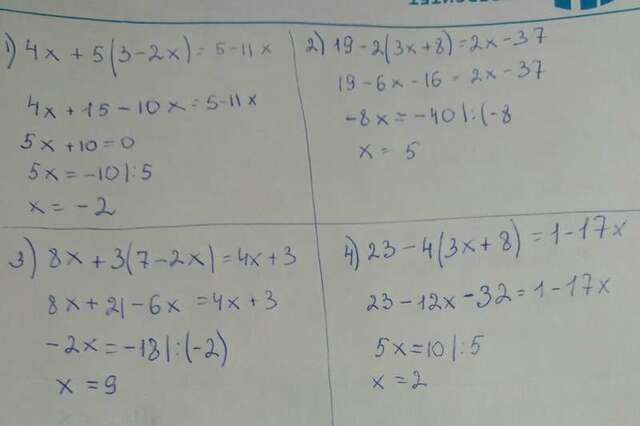 1) 4x + 5(3-2x) = 5-11x
4x+15-10x=5-11x
5x+10=0
5x=-10|:5
x=-2
2) 19-2(3x+8)=2x-37
19-6x-16=2x-37
-8x=-40|:(-8
x= 5
3) 8x+3(7-2x)=4x+3
8x+21-6x =4x+3
-2x=-18|:(-2)
x=9
4) 23-4(3x+8)=1-17x
23-12x-32=1-17x
5x=10|:5
x=2